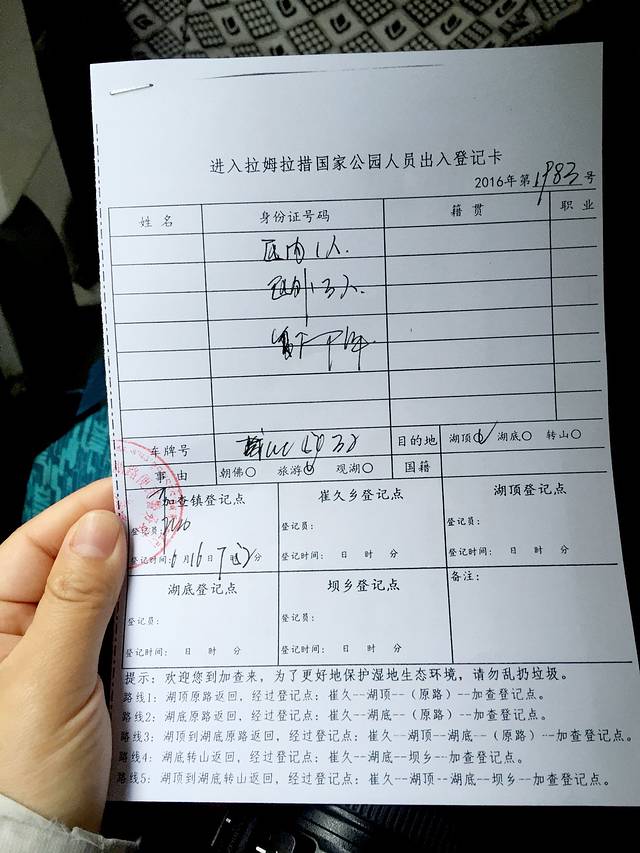 进入拉姆拉措国家公园人员出入登记卡
2016年第1983号
姓名 身份证号码 籍贯 职业
区内1人.
区外3人.
车牌号 目的地 湖顶 湖底 转山
事由 朝佛 旅游 观湖 国籍
加查镇登记点 崔久乡登记点 湖顶登记点
登记员: 登记员: 登记员:
登记时间:6月16日7时 分 登记时间: 日 时 分 登记时间: 日 时 分
湖底登记点 坝乡登记点 备注:
登记员: 登记员:
登记时间: 日 时 分 登记时间: 日 时 分
提示: 欢迎您到加查来,为了更好地保护湿地生态环境,请勿乱扔垃圾。
路线1: 湖顶原路返回,经过登记点: 崔久--湖顶--(原路)--加查登记点。
路线2: 湖底原路返回,经过登记点: 崔久--湖底--(原路)--加查登记点。
路线3: 湖顶到湖底原路返回,经过登记点: 崔久--湖顶--湖底--(原路)--加查登记点。
路线4: 湖底转山返回,经过登记点: 崔久--湖底--坝乡--加查登记点。
路线5: 湖顶到湖底转山返回,经过登记点: 崔久--湖顶--湖底--坝乡--加查登记点。